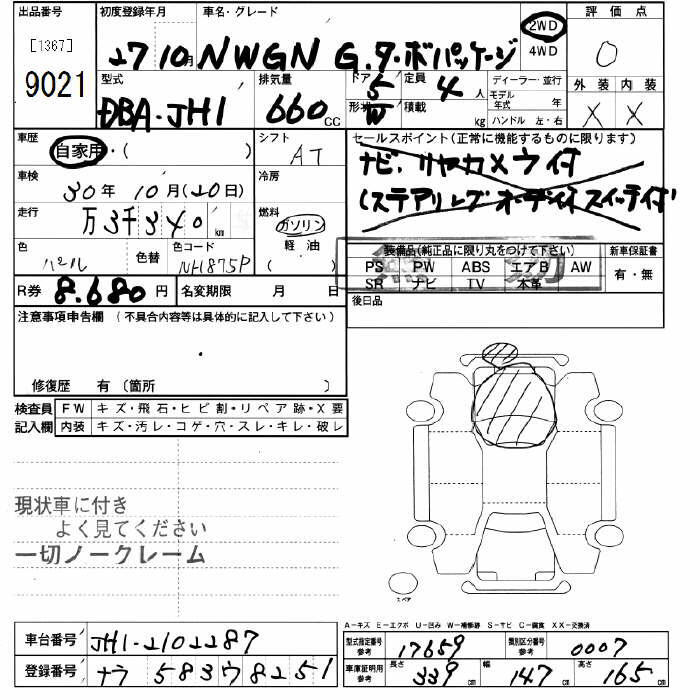 出品番号 初度登録年月 車名・グレード 2WD 評価点
[1367] 27 10月 NWGN G.タ-ボパッケージ 4WD 0
9021 型式 排気量 ドア 5 定員 4人 ディーラー・並行 外装 内装
DBA-JH1 660cc 形状 W 積載 kg モデル年式 年 ハンドル 左・右 X X
車歴 シフト セールスポイント(正常に機能するものに限ります)
自家用・( ) AT ナビ、リヤカメラ付
車検 冷房 (ステアリング オーディオスイッチ付)
30年10月(20日)
走行 燃料
万3千340km ガソリン
色 色替 色コード 軽油 装備品(純正品に限り丸をつけて下さい) 新車保証書
パール NH875P ( ) PS PW ABS エアB AW 有・無
R券 8.680円 名変期限 月 日 SR ナビ TV 本革
後日品
注意事項申告欄(不具合内容等は具体的に記入して下さい)
修復歴 有(箇所 )
検査員 FW キズ・飛石・ヒビ割・リペア跡・X要
記入欄 内装 キズ・汚レ・コゲ・穴・スレ・キレ・破レ
現状車に付き
よく見てください
一切ノークレーム
スペア
A-キズ E-エクボ U-凹み W-補修跡 S-サビ C-腐食 XX-交換済
車台番号 JH1-2102287 型式指定番号 参考 17659 類別区分番号 参考 0007
登録番号 ナラ 583ウ8251 車庫証明用 参考 長さ 339cm 幅 147cm 高さ 165cm